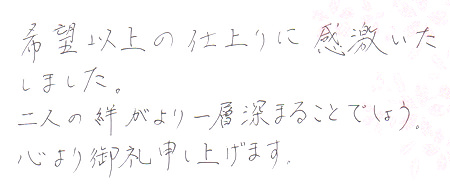 希望以上の仕上りに感激いた
しました。
二人の絆がより一層深まることでしょう。
心より御礼申し上げます。